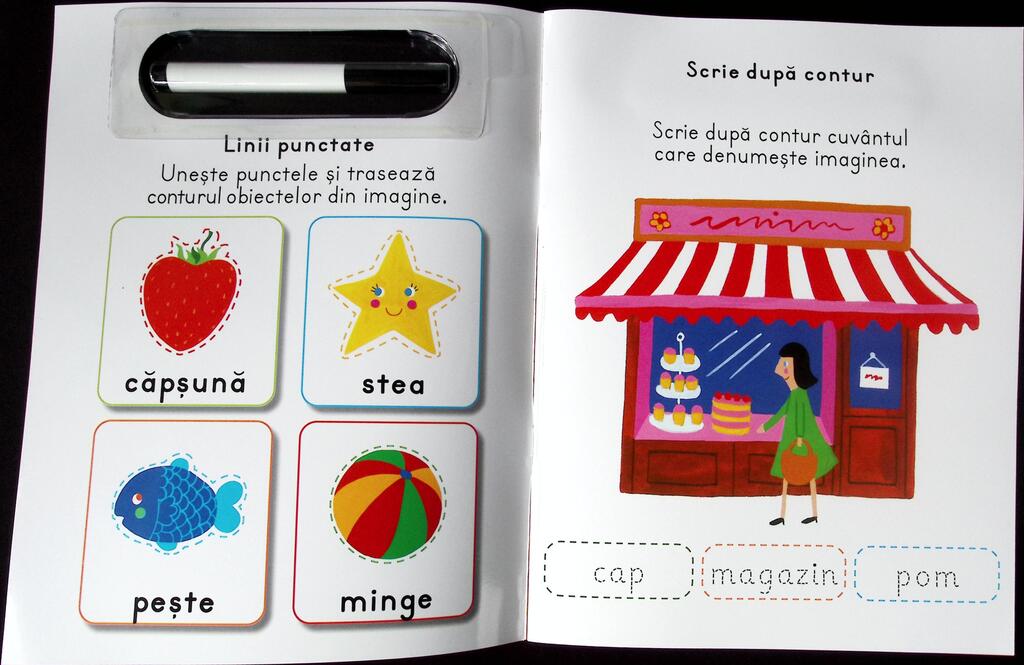 Linii punctate
Unește punctele și trasează
conturul obiectelor din imagine.
căpșună
stea
pește
minge
Scrie după contur
Scrie după contur cuvântul
care denumește imaginea.
cap
magazin
pom